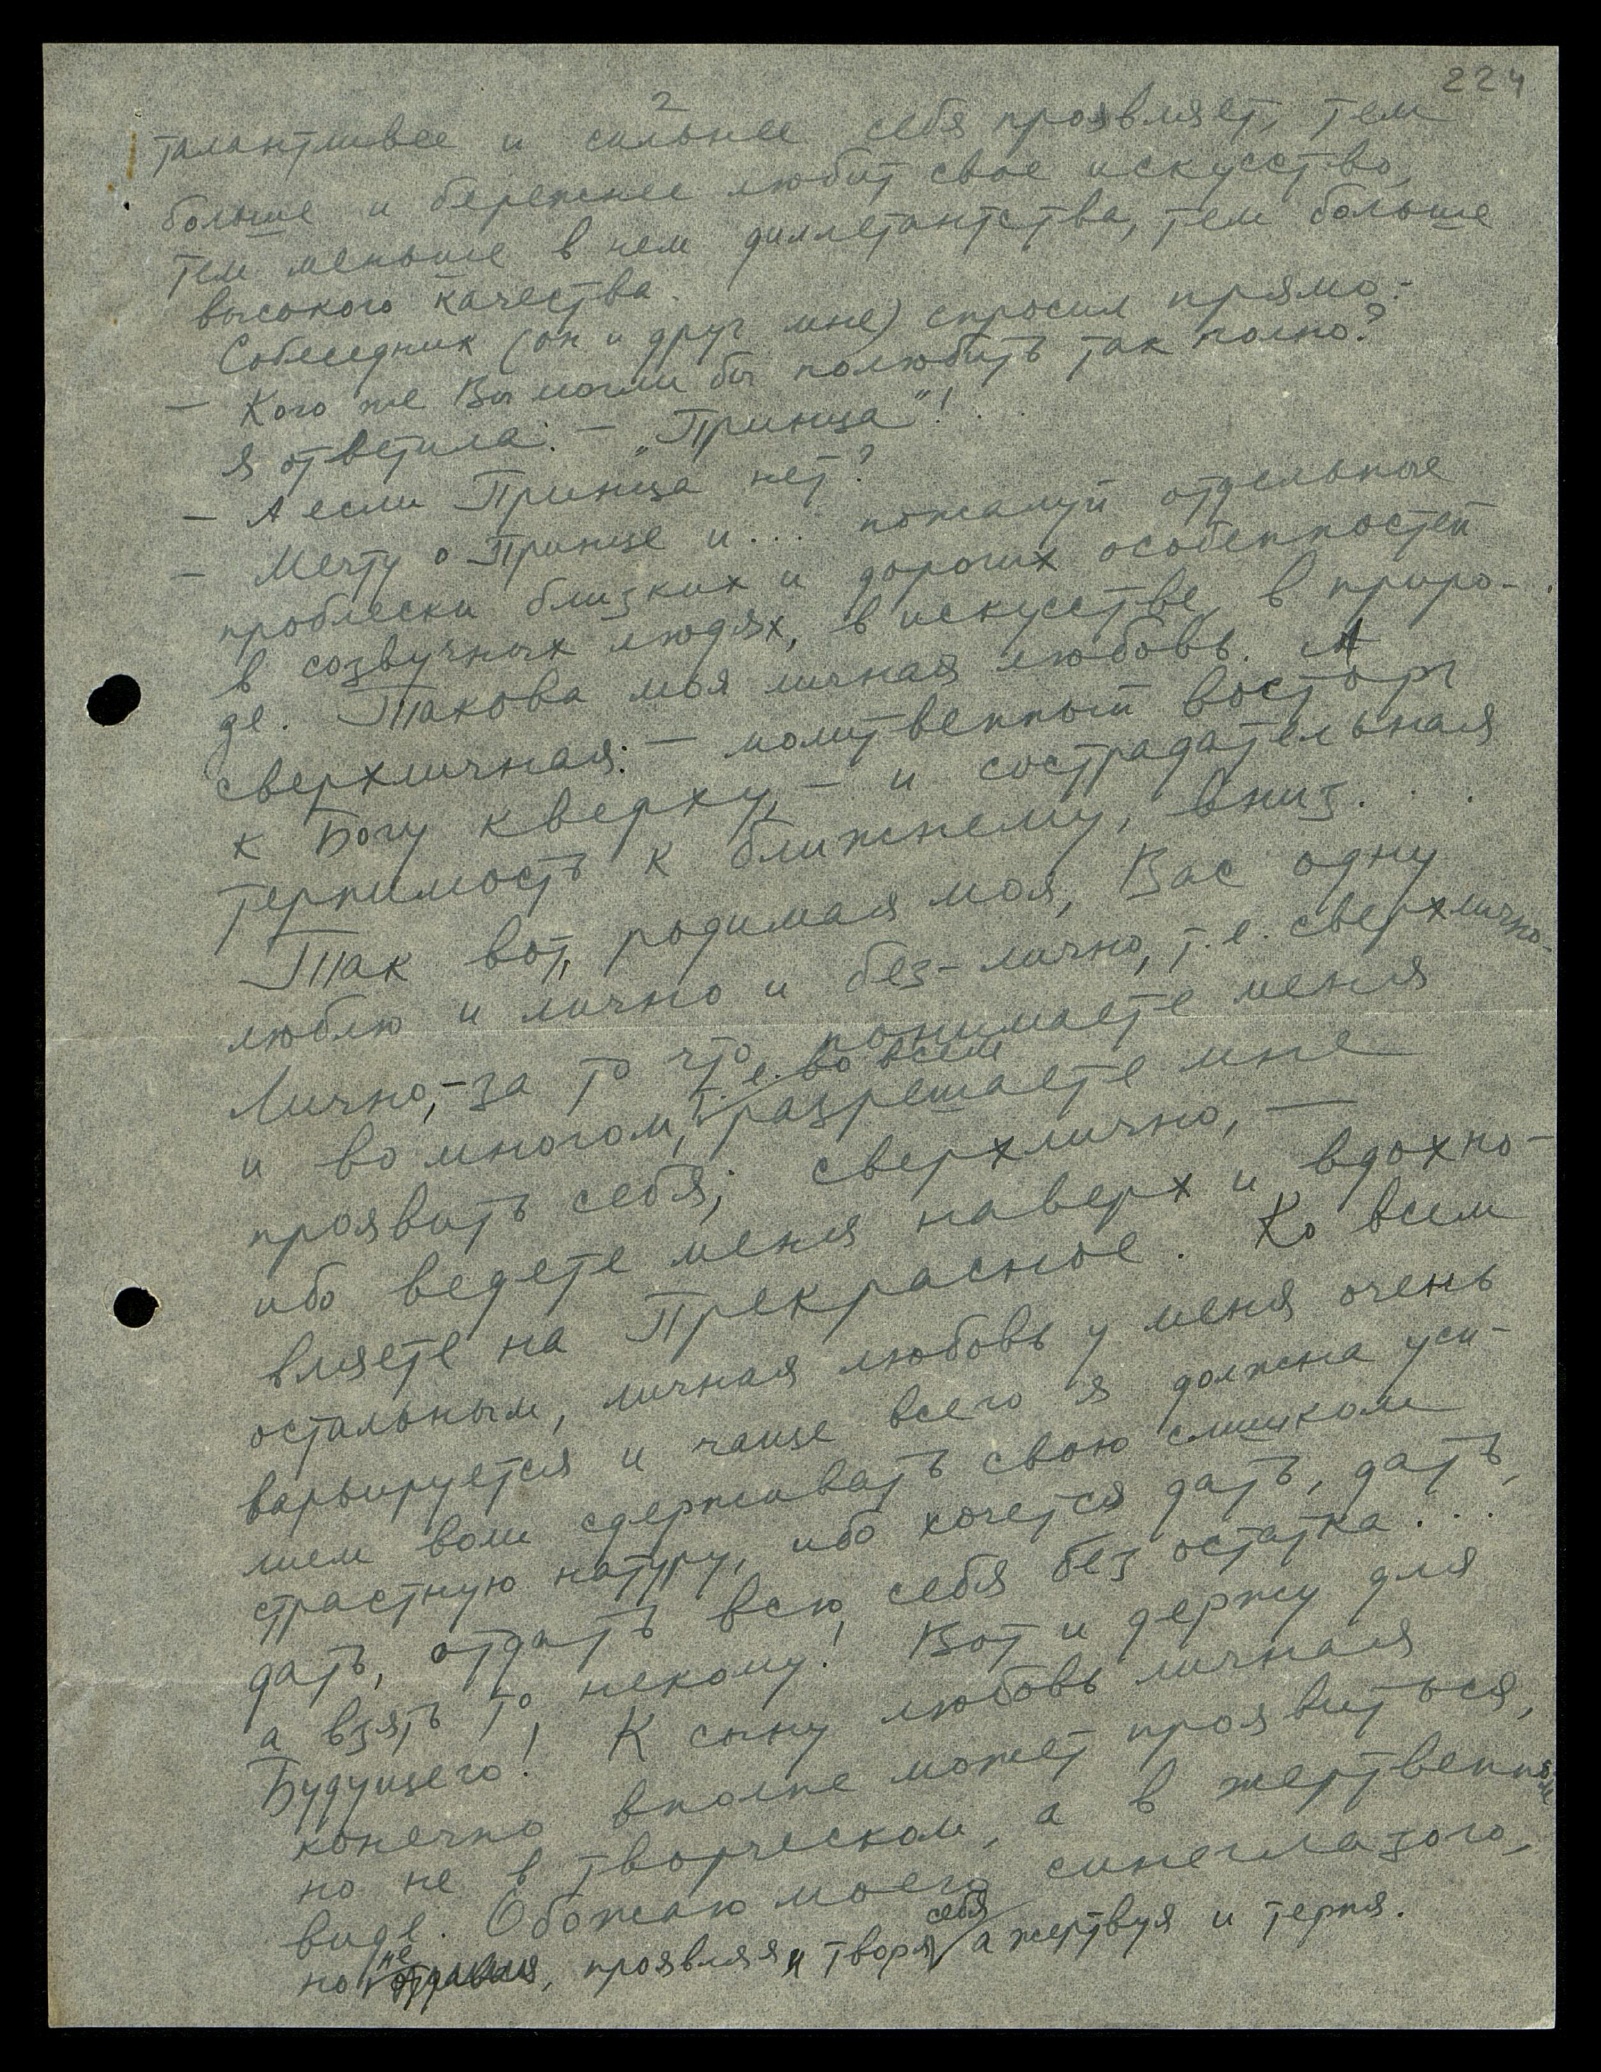 224
2
талантливее и сильнее себя проявляет, тем
больше и бережнее любит свое искусство,
тем меньше в нем диллетантства, тем больше
высокого качества.
Собеседник (он и друг мне) спросил прямо:-
— Кого же Вы могли бы полюбить так полно?
Я ответила: — „Принца"!
— А если Принца нет?
— Мечту о Принце и... пожалуй отдельные
проблески близких и дорогих особенностей
в созвучных людях, в искусстве, в приро-
де. Такова моя личная любовь. А
сверхличная: — молитвенный восторг
к Богу кверху, — и сострадательная
терпимость к ближнему, вниз...
Так вот, родимая моя, Вас одну
люблю и лично и без-лично, т.е. сверхлично.
Лично,-за то что понимаете меня
и во многом, т.е. во всем разрешаете мне
проявить себя; сверхлично, —
ибо ведете меня наверх и вдохно-
вляете на Прекрасное. Ко всем
остальным, личная любовь у меня очень
варьируется и чаще всего я должна уси-
лием воли сдерживать свою слишком
страстную натуру, ибо хочется дать, дать,
дать, отдать всю себя без остатка...
а взять то некому! Вот и держу для
Будущего! К сыну любовь личная
конечно вполне может проявиться,
но не в творческом, а в жертвенном
виде. Обожаю моего синеглазого,
но не проявляя и творя себя а жертвуя и терпя.